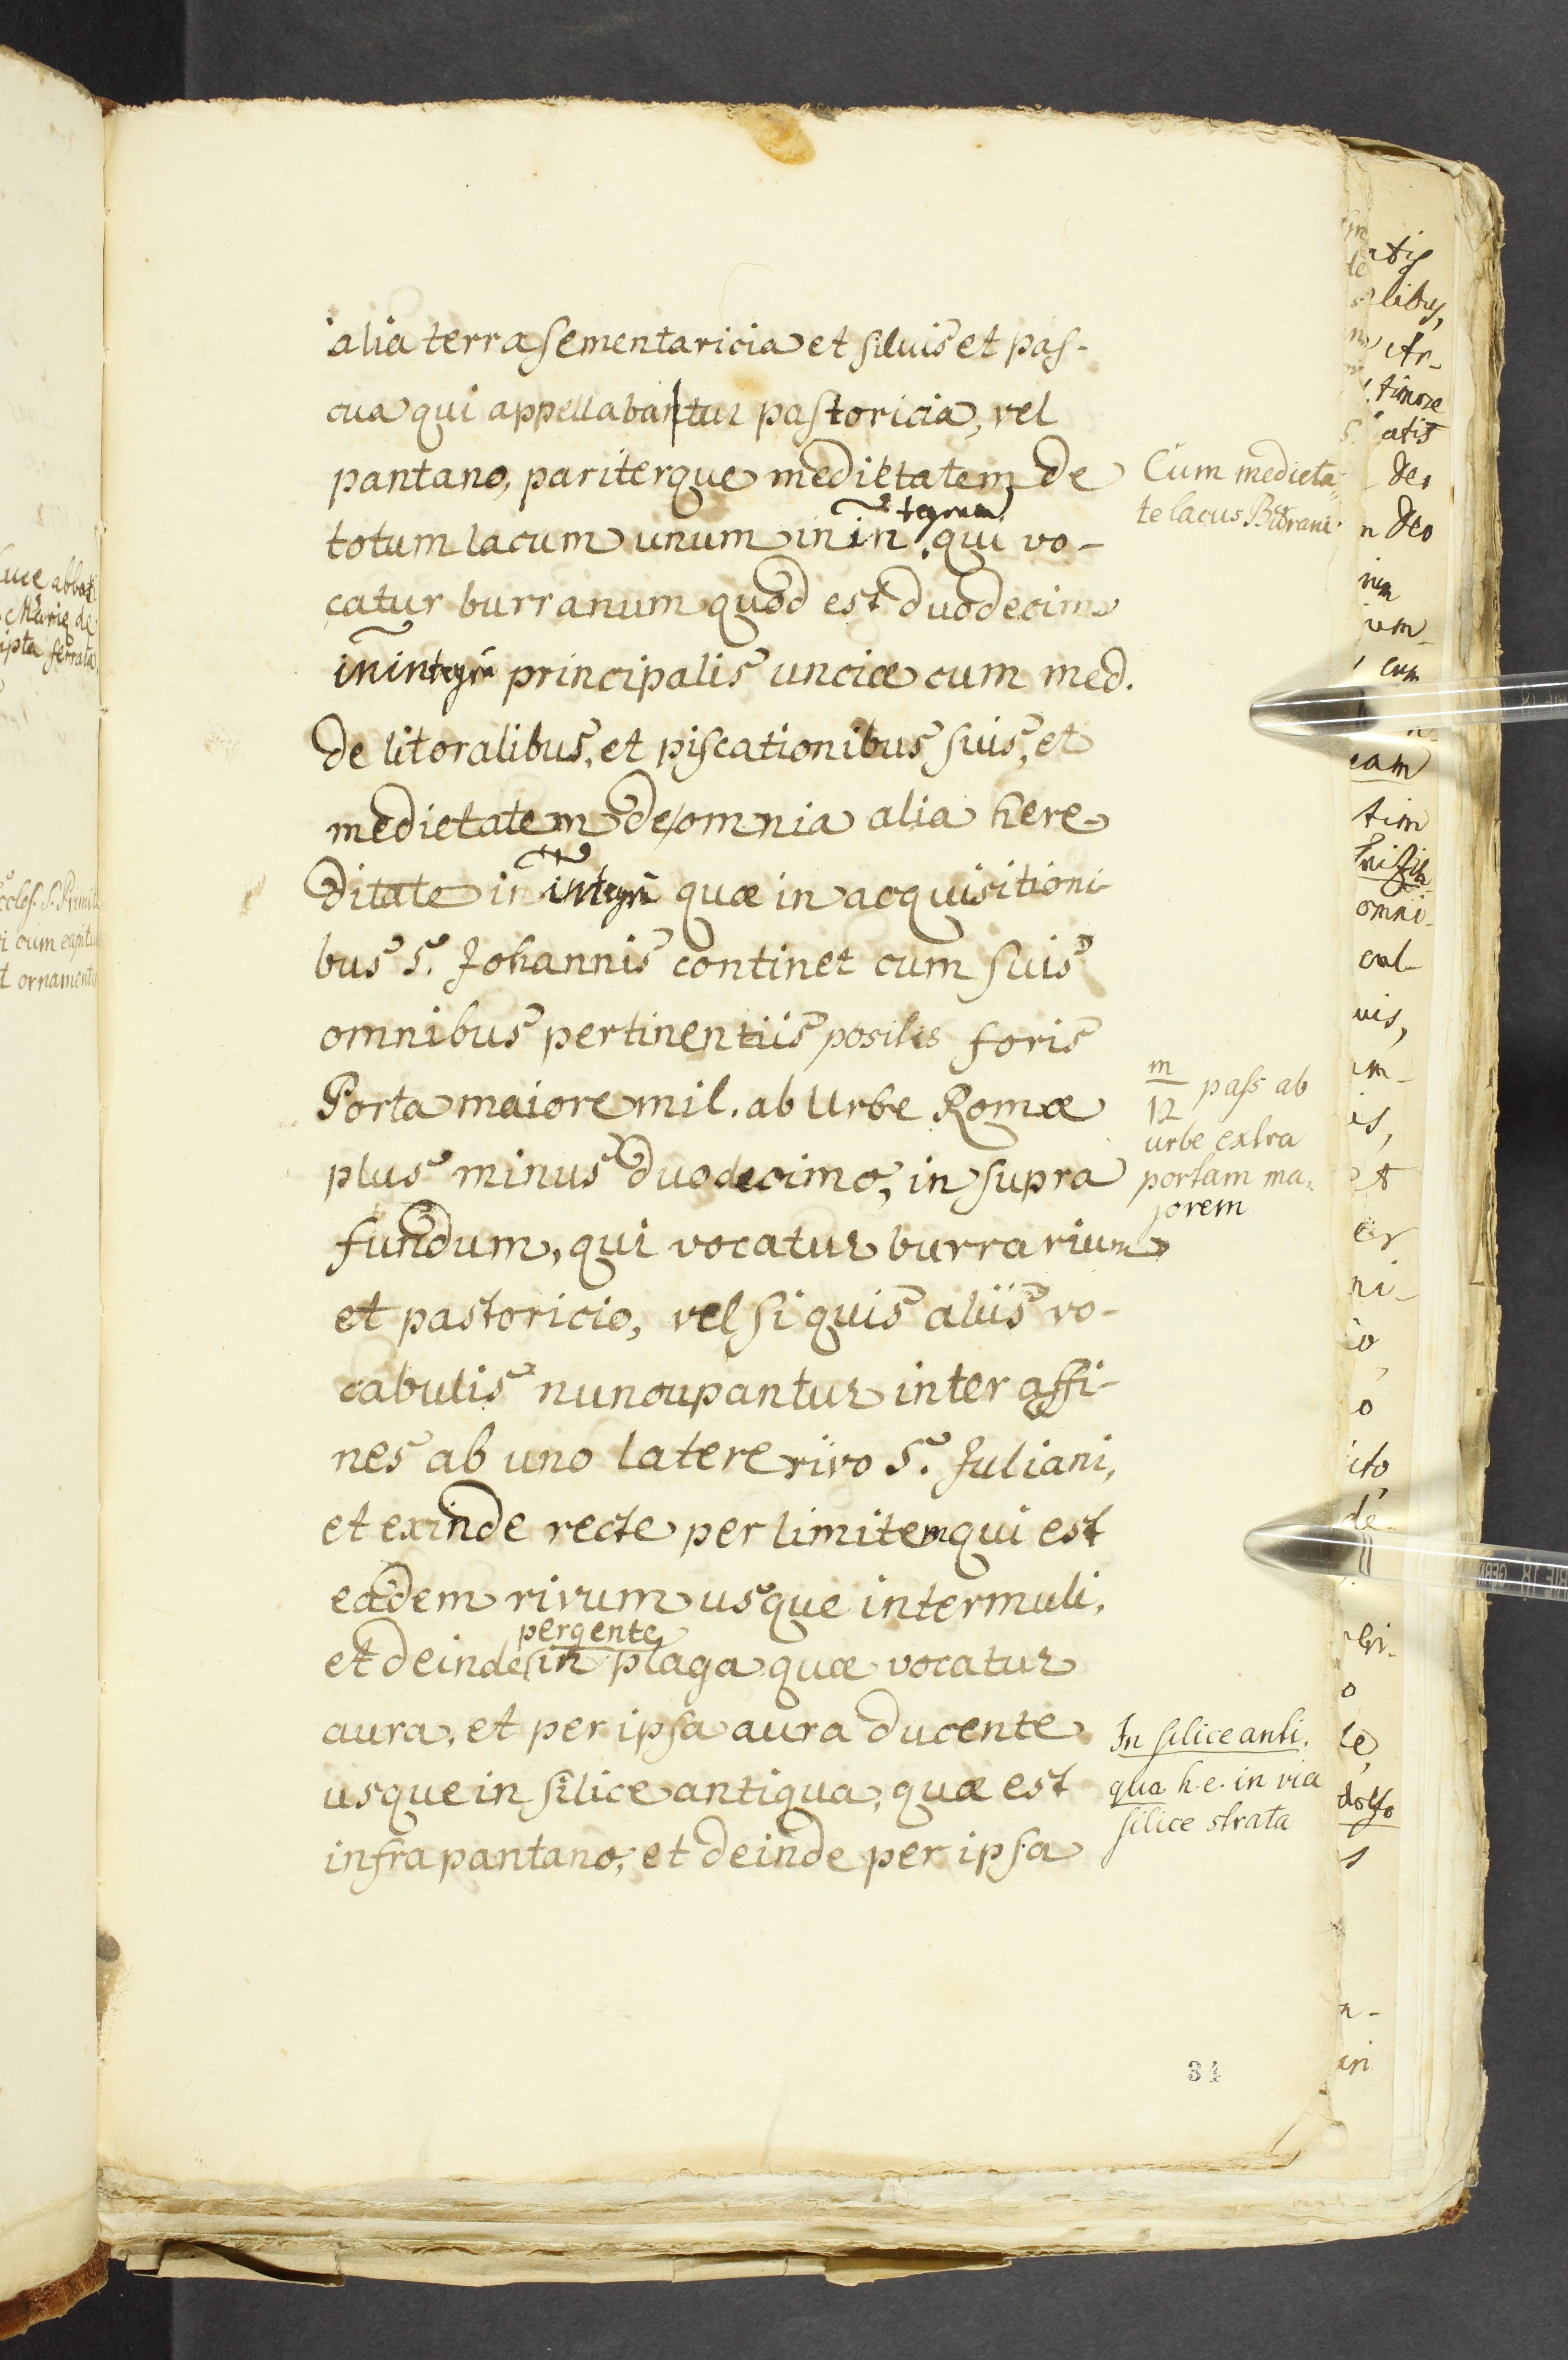 alia terra sementaricia et silvis et pas-
cua qui appellabantur pastoricia, vel
pantano, pariterque medietatem de
totum lacum unum in in tegrum qui vo-
catur burranum quod est duodecim
in integrũ principalis unciæ cum med.
de litoralibus, et piscationibus suis, et
medietatem de omnia alia here
ditate in integrũ quæ in acquisitioni-
bus S. Johannis continet cum suis
omnibus pertinentiis positis foris
Porta maiore mil. ab Urbe Romæ
plus minus duodecimo, in supra
fundum, qui vocatur burrarium
et pastoricio, vel si quis aliis vo-
cabulis nuncupantur inter affi-
nes ab uno latere rivo S. Juliani,
et exinde recte per limitem qui est
eadem rivum usque intermuli,
et deinde pergente in plaga quæ vocatur
aura, et per ipsa aura ducente
usque in silice antiqua, quæ est
infra pantano, et deinde per ipsa
Cum medieta-
te lacus Burrani
m
12 pass ab
urbe extra
portam ma-
jorem
In silice anti.
qua h.e. in via
silice strata
34